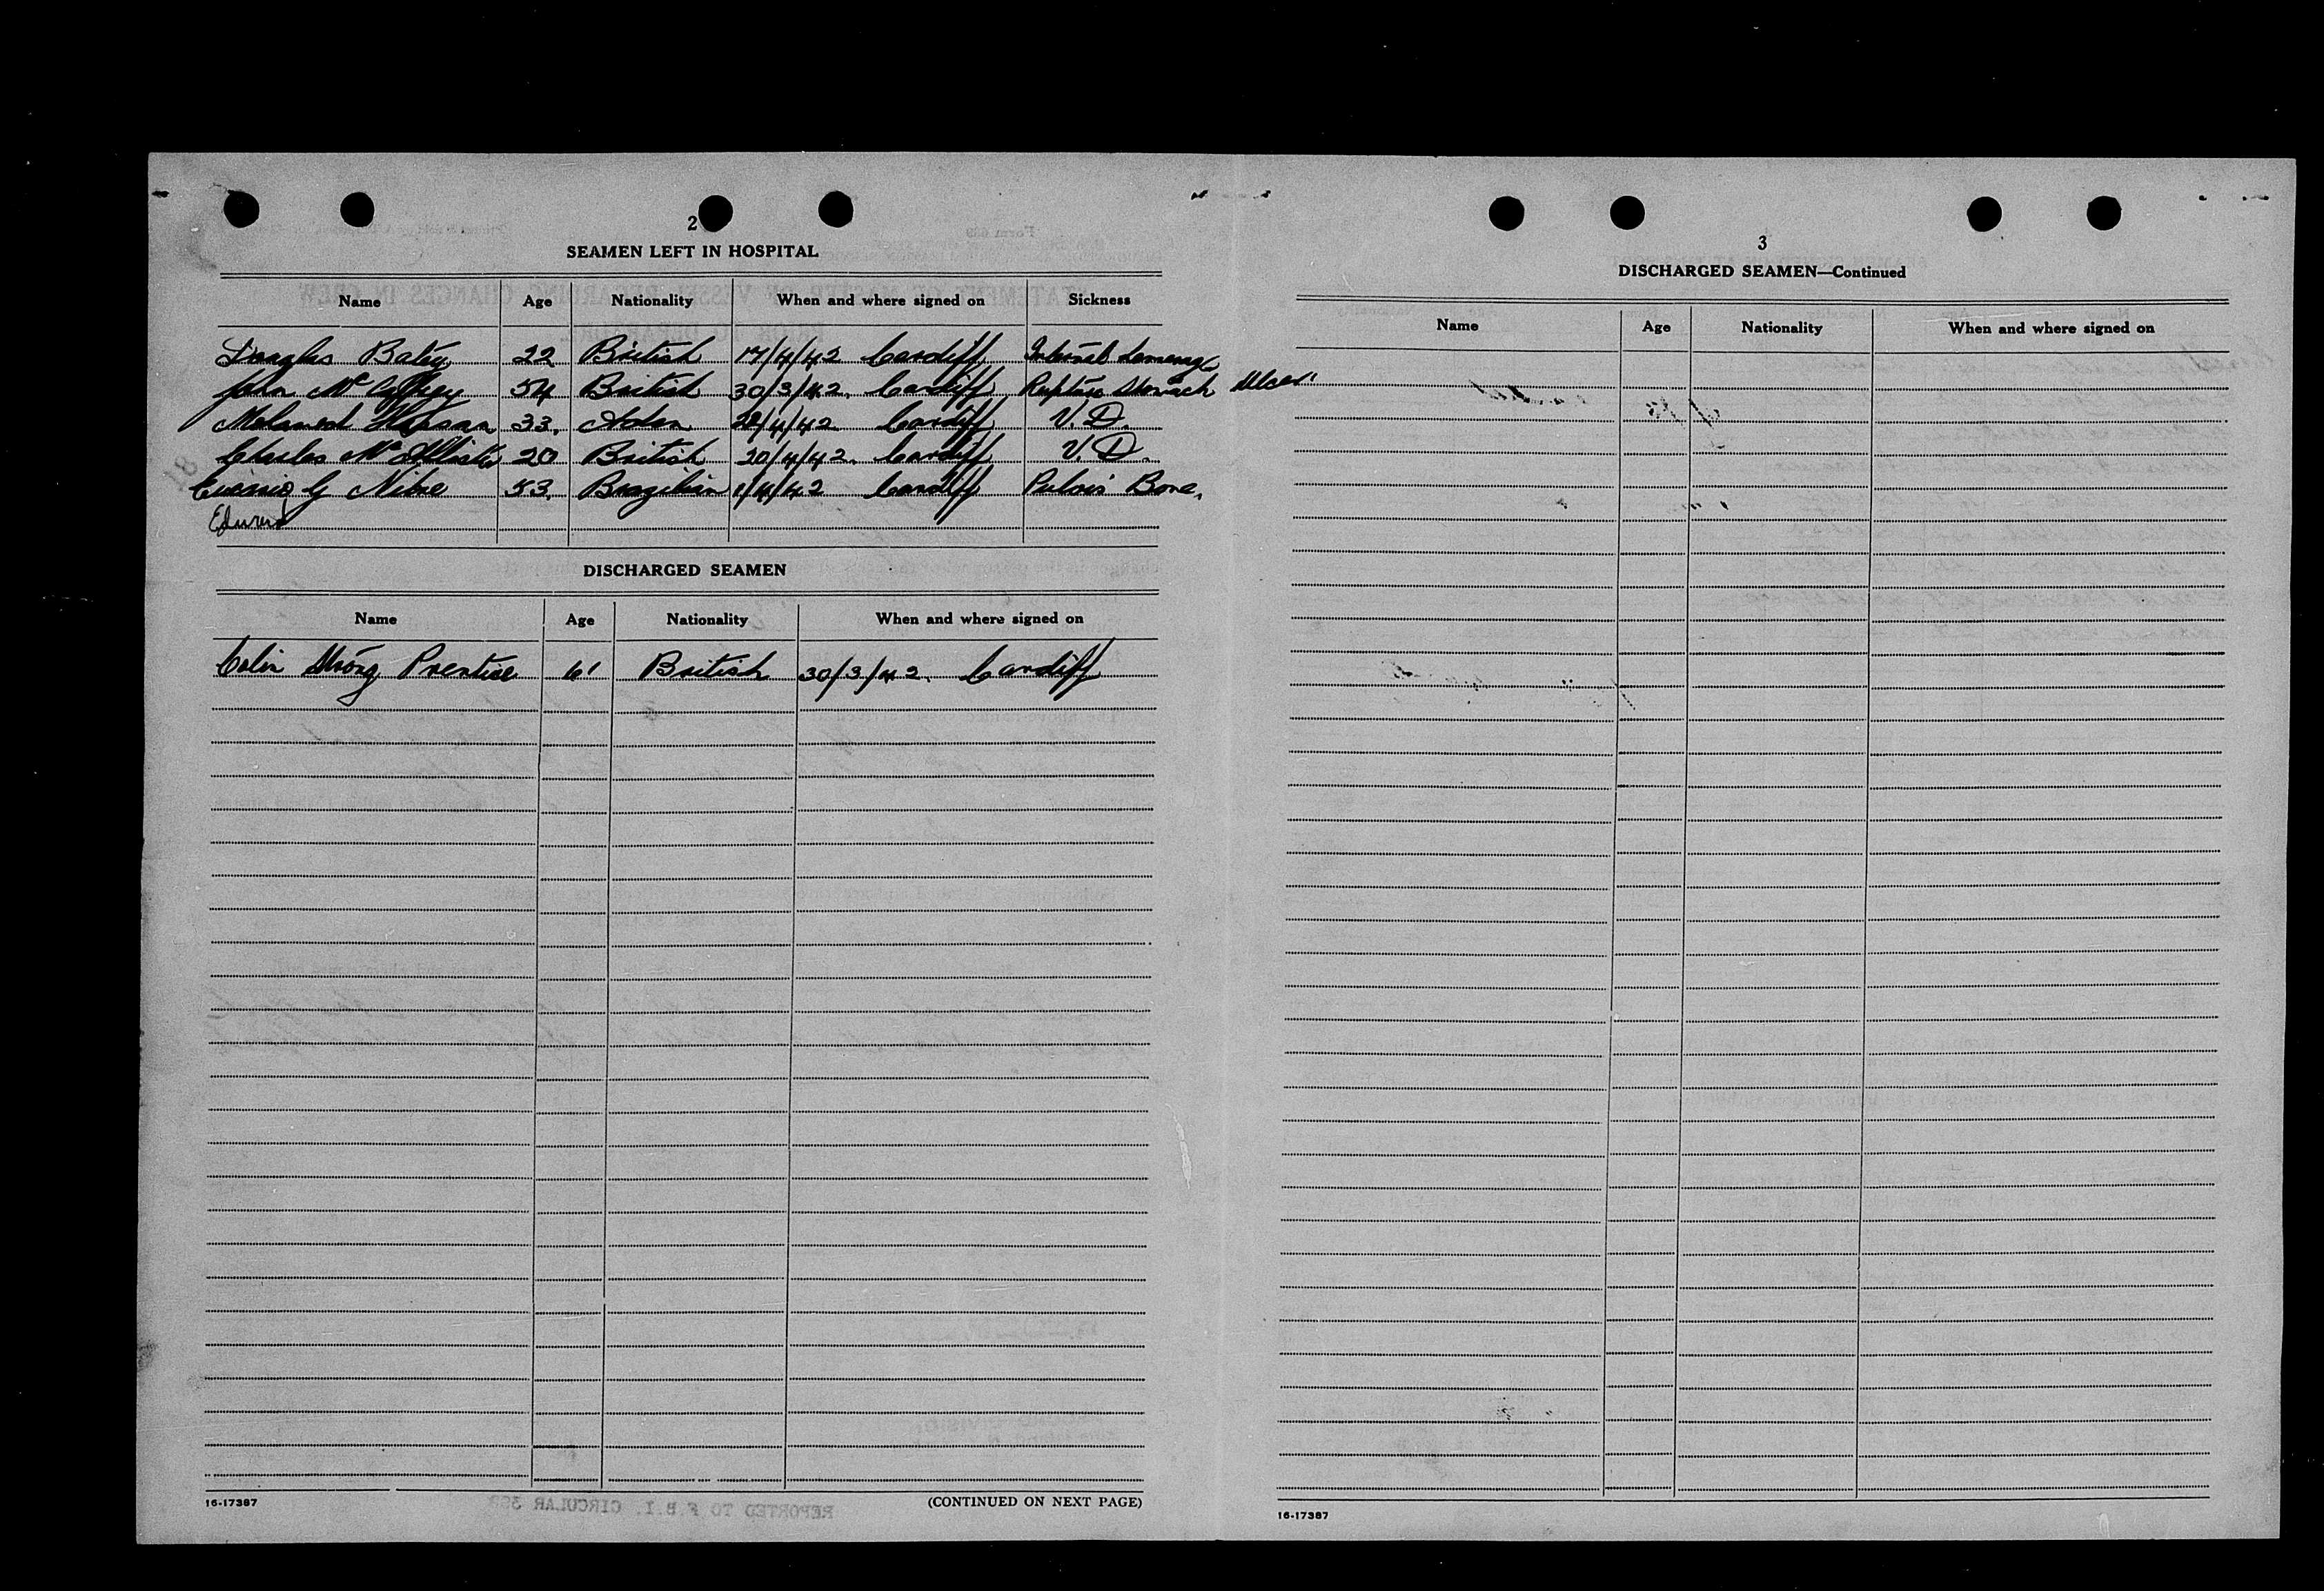 2
SEAMEN LEFT IN HOSPITAL
Name Age Nationality When and where signed on Sickness
Douglas Batey 22 British 17/4/42 Cardiff Internal
John Mc Caffrey 54 British 30/3/42. Cardiff Rupture Stomach Ulcer
Mohamed Hassan 33. Aden 20/4/42 Cardiff V.D.
Charles McAllister 20 British 20/4/42. Cardiff V.D.
G 53. Brazilian 1/4/42 Cardiff Bone.
Edward
DISCHARGED SEAMEN
Name Age Nationality When and where signed on
Colin Strong Prentice 61 British 30/3/42. Cardiff
16-17387
REPORTED TO F.B.I. CIRCULAR
(CONTINUED ON NEXT PAGE)
3
DISCHARGED SEAMEN—Continued
Name Age Nationality When and where signed on
16-17387